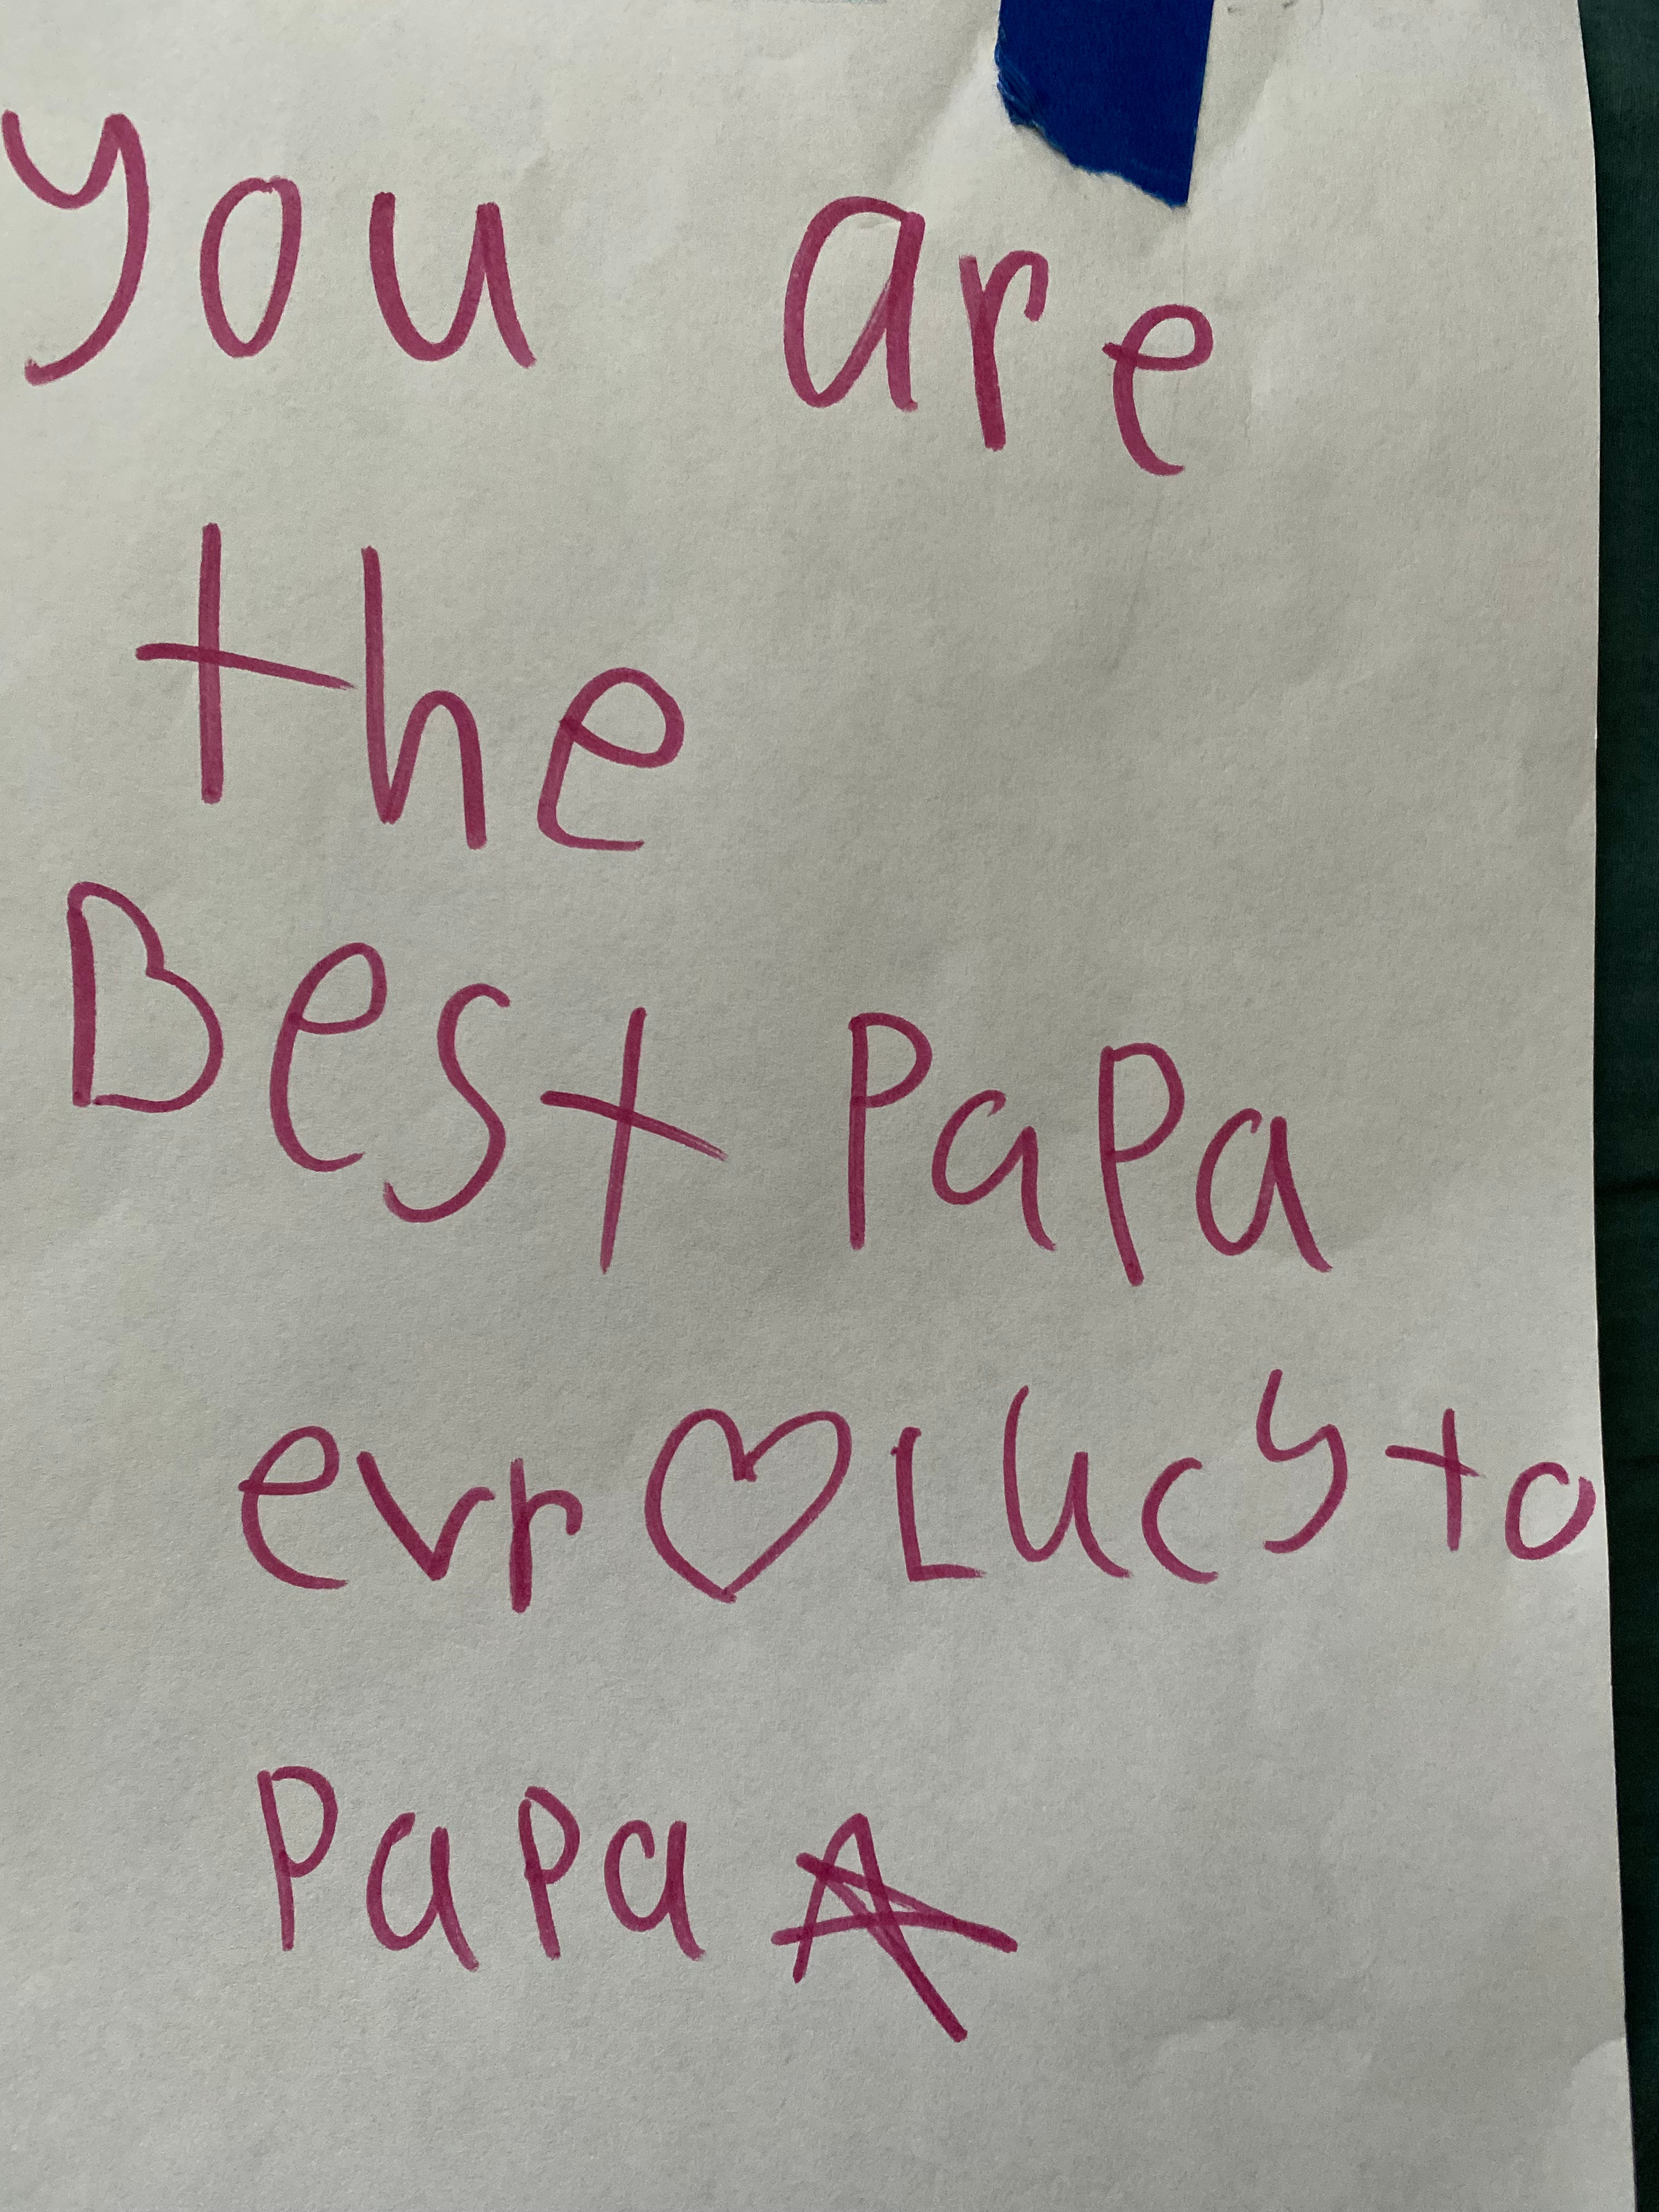 you are
the
Best Papa
evr ♡ Lucy to
Papa ☆